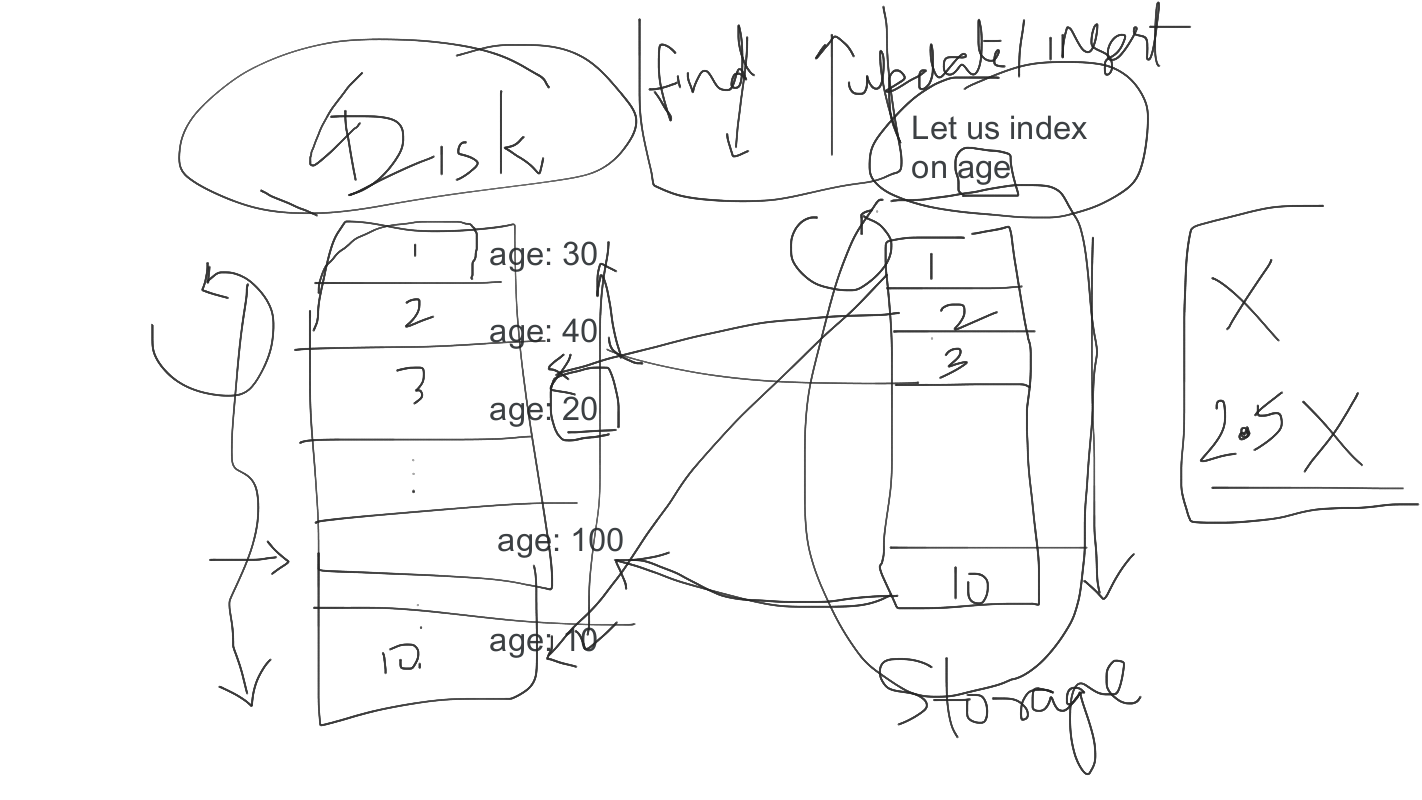 find ↓ ↑ update / insert
Disk
Let us index
on age
1
age: 30
2
age: 40
3
age: 20
age: 100
10
age: 10
1
2
3
10
Storage
X
2.5 X